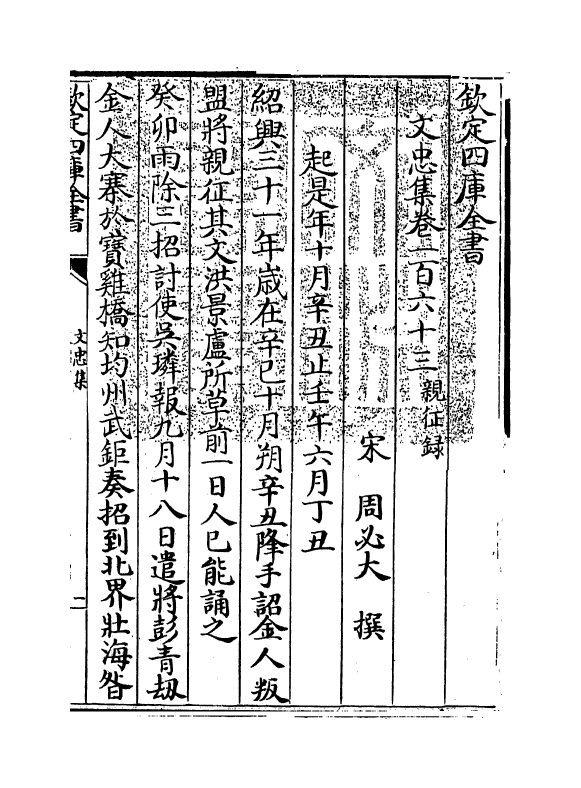 欽定四庫全書
文忠集卷一百六十三 親征録
宋 周必大 撰
起是年十月辛丑止壬午六月丁丑
紹興三十一年歳在辛巳十月朔辛丑降手詔金人叛
盟將親征其文洪景盧所草前一日人已能誦之
癸卯雨除三招討使吳璘報九月十八日遣將彭青刼
金人大寨於寶雞橋知均州武鉅奏招到北界壯海昝
欽定四庫全書
文忠集